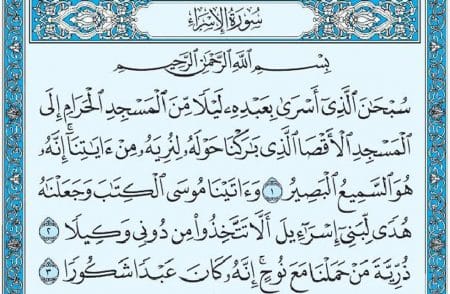 سُورَةُ الإِسْرَاءِ
بِسْمِ ٱللَّهِ ٱلرَّحْمَٰنِ ٱلرَّحِيمِ
سُبْحَٰنَ ٱلَّذِىٓ أَسْرَىٰ بِعَبْدِهِۦ لَيْلًا مِّنَ ٱلْمَسْجِدِ ٱلْحَرَامِ إِلَى
ٱلْمَسْجِدِ ٱلْأَقْصَا ٱلَّذِى بَٰرَكْنَا حَوْلَهُۥ لِنُرِيَهُۥ مِنْ ءَايَٰتِنَآ ۚ إِنَّهُۥ
هُوَ ٱلسَّمِيعُ ٱلْبَصِيرُ ١ وَءَاتَيْنَا مُوسَى ٱلْكِتَٰبَ وَجَعَلْنَٰهُ
هُدًى لِّبَنِىٓ إِسْرَٰٓءِيلَ أَلَّا تَتَّخِذُوا۟ مِن دُونِى وَكِيلًا ٢
ذُرِّيَّةَ مَنْ حَمَلْنَا مَعَ نُوحٍ ۚ إِنَّهُۥ كَانَ عَبْدًا شَكُورًا ٣